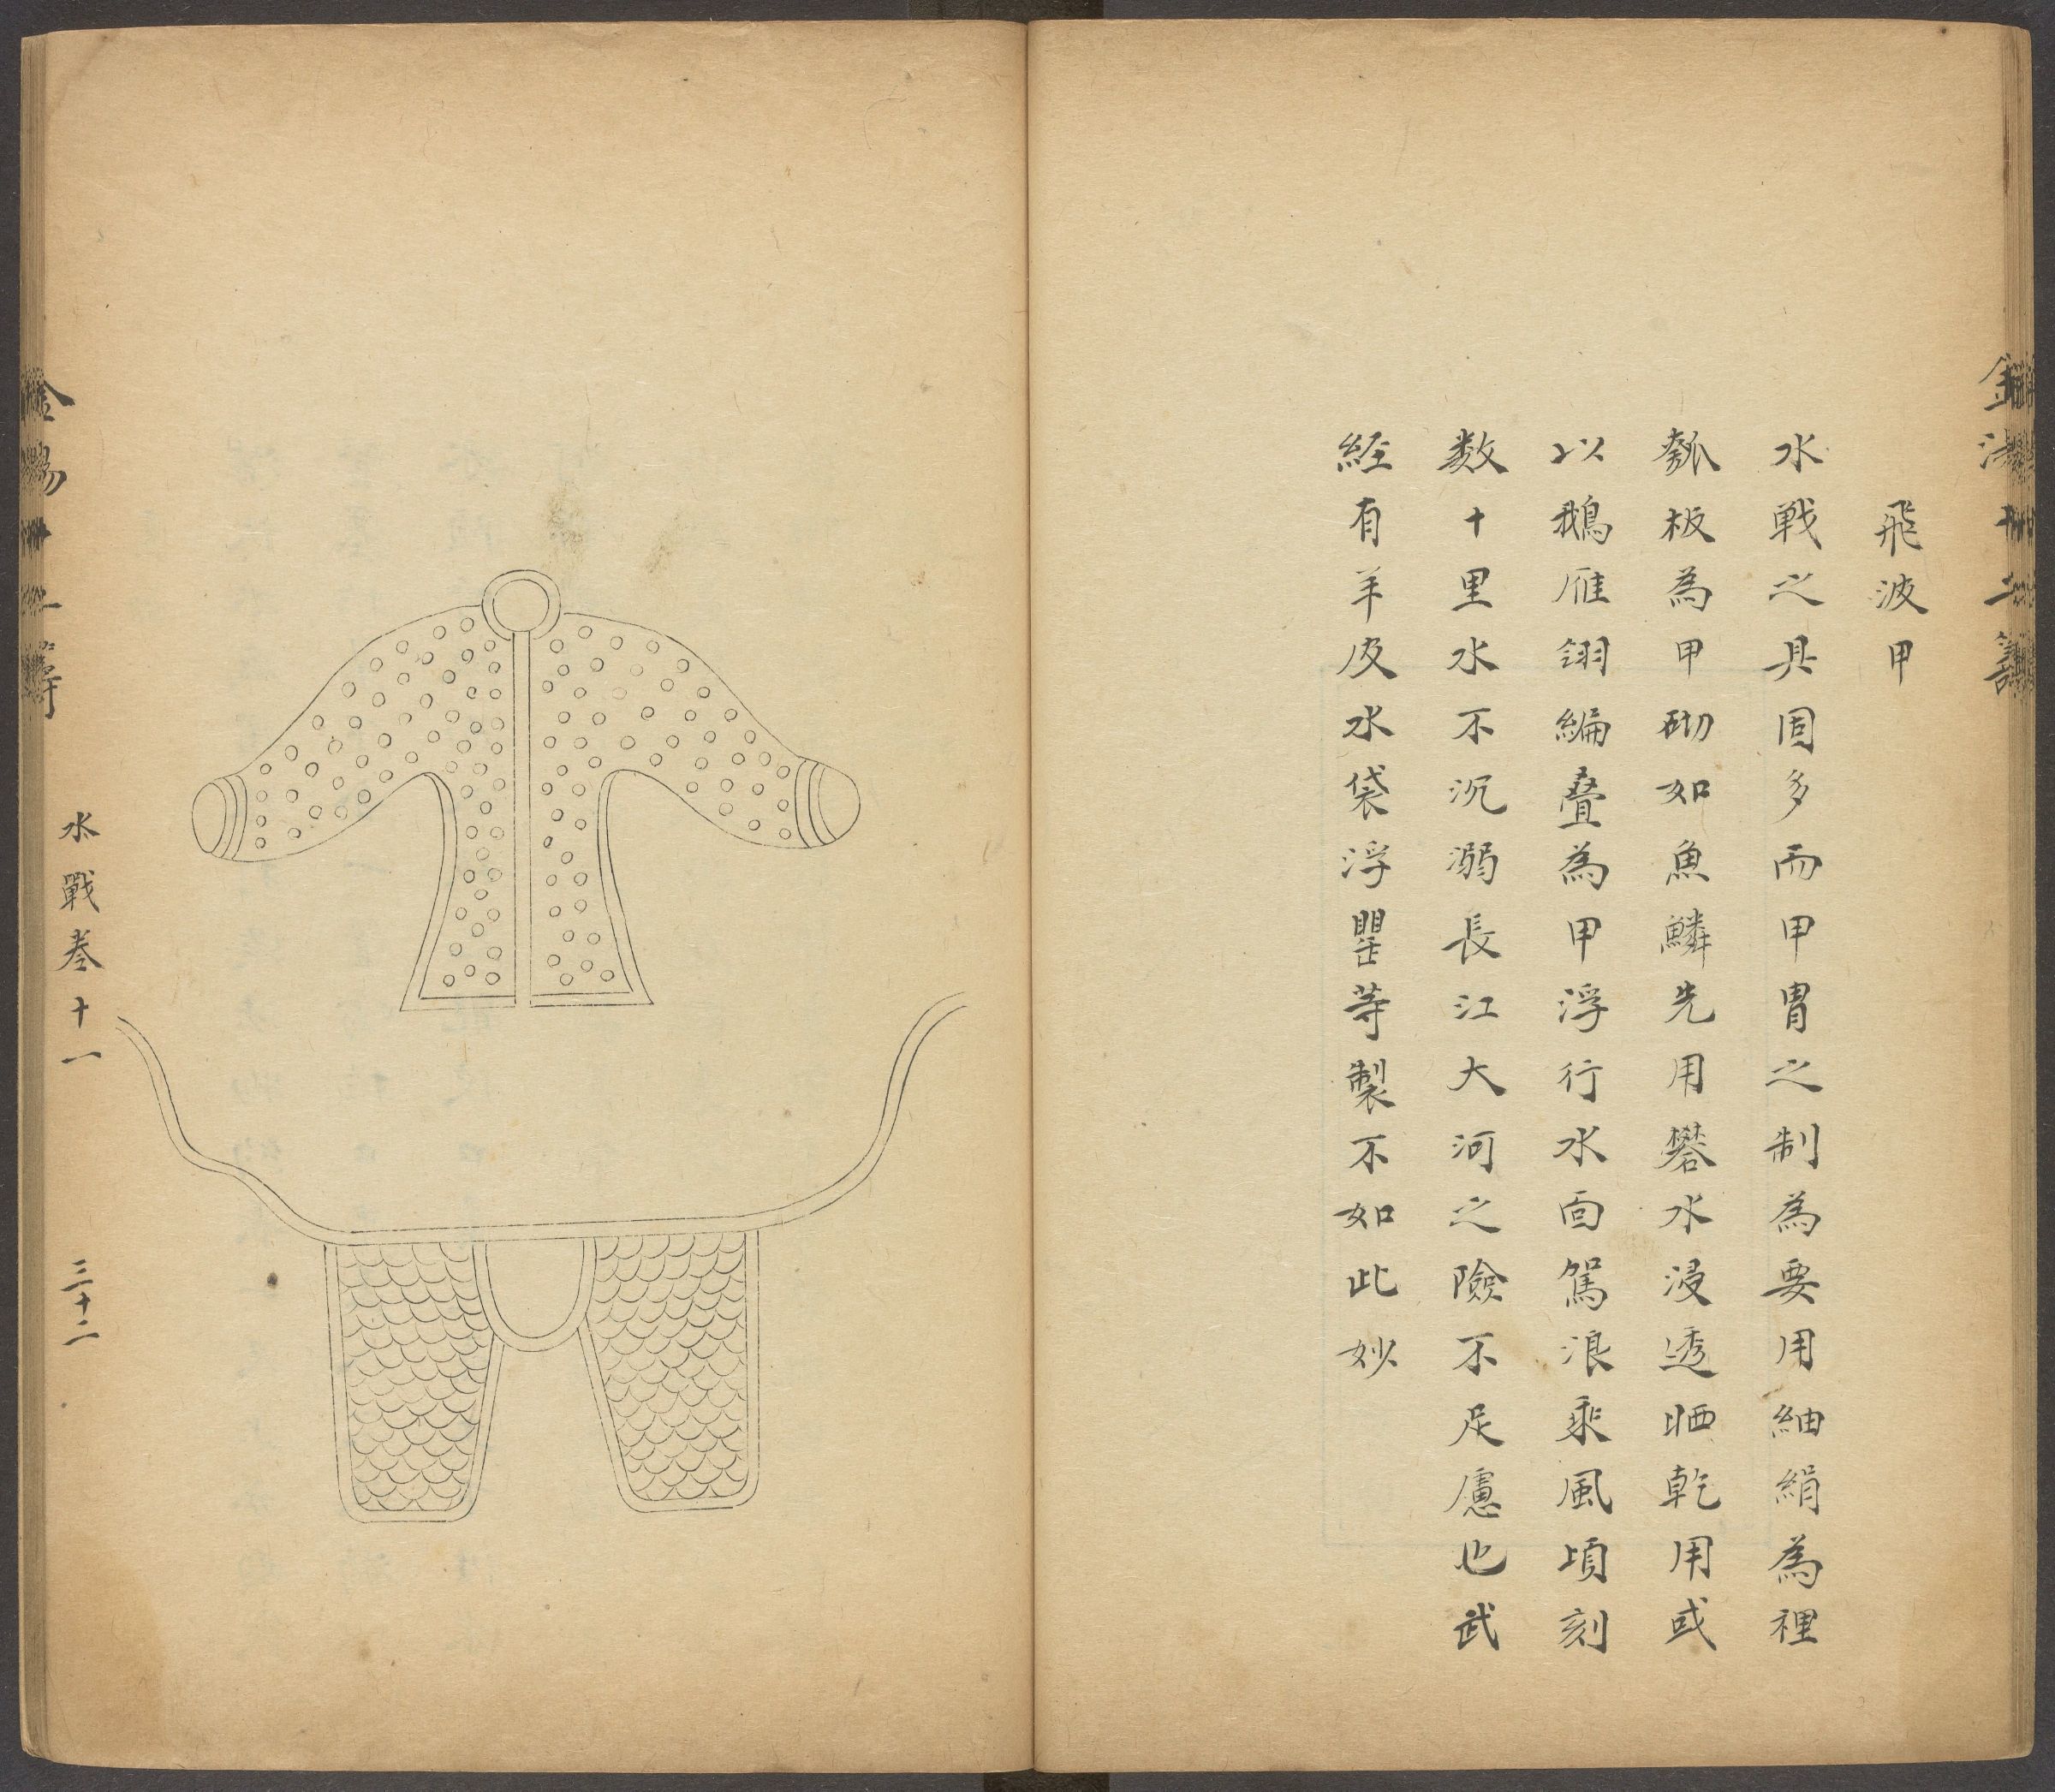 飛波甲
水戦之具固多而甲冑之制為要用紬絹為裡
瓠板為甲砌如魚鱗先用礬水浸透晒乾用或
以鵝雁翎編叠為甲浮行水面駕浪乘風頃刻
数十里水不沉溺長江大河之險不足慮也武
経有羊皮水袋浮罌等製不如此妙
水戰卷十一
三十二